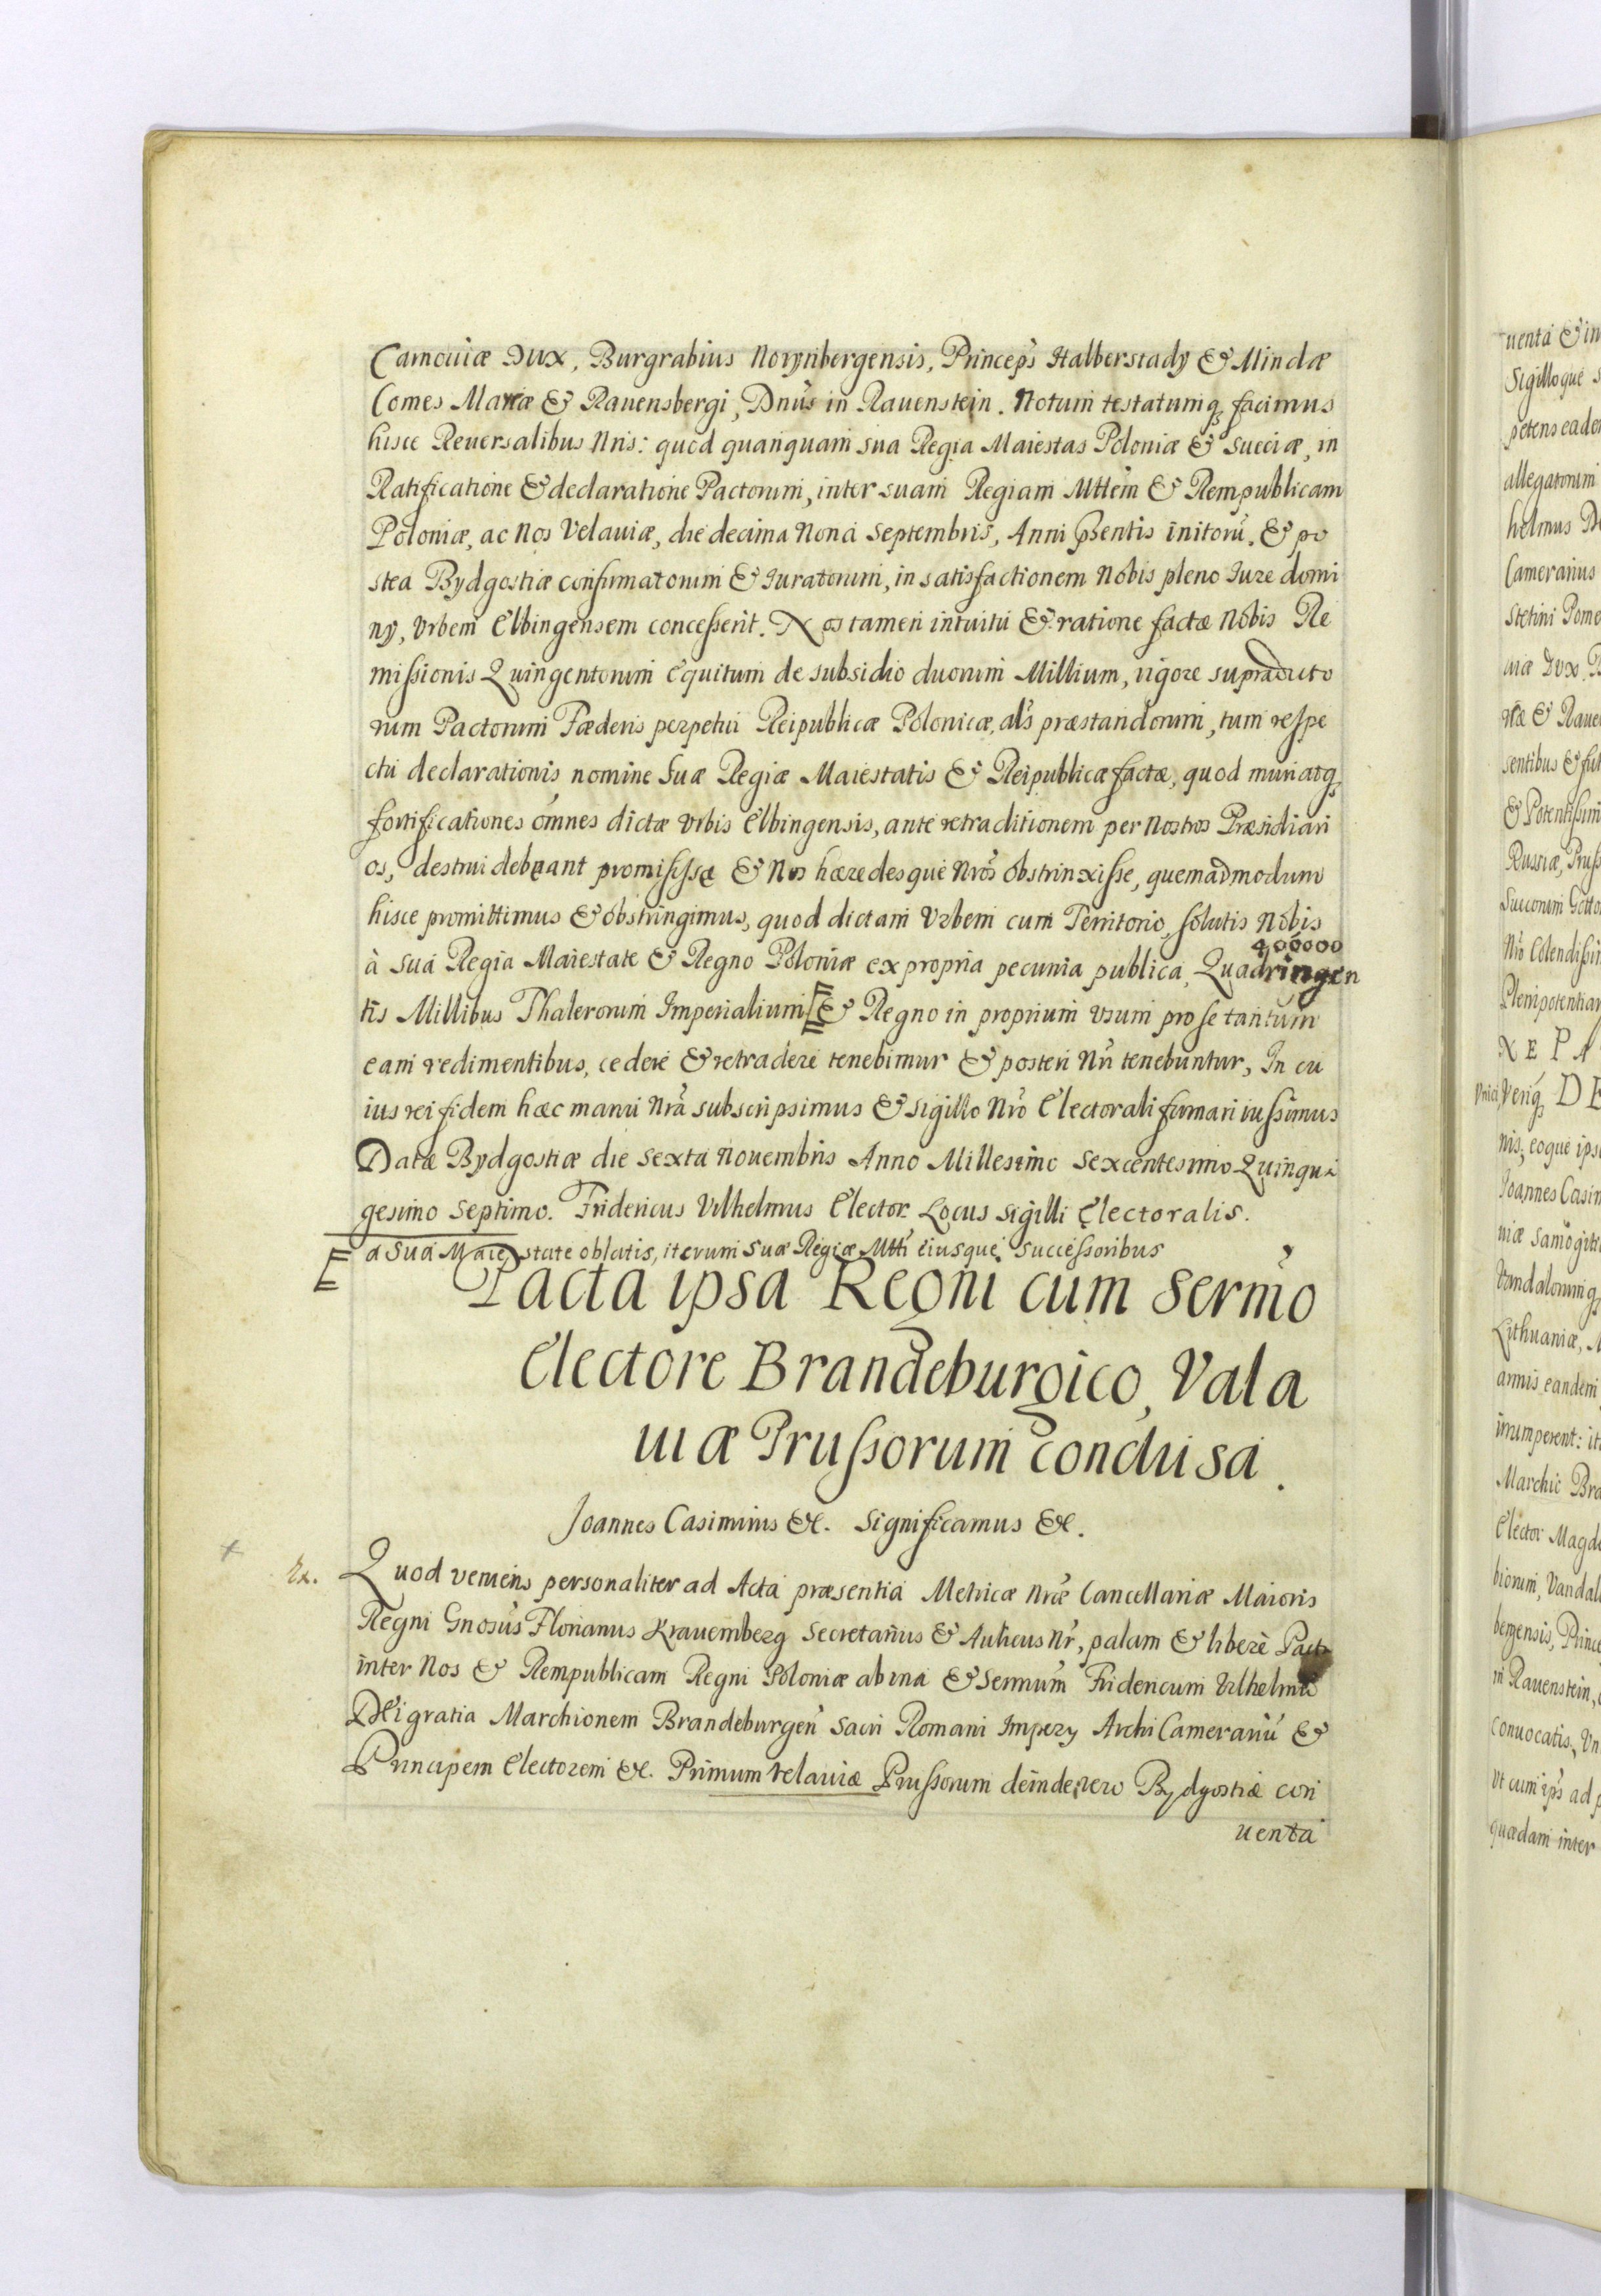 Carnouiæ Dux, Burgrabius Norynbergensis, Princeps Halberstady & Mindæ
Comes Marcæ & Rauensbergi, Dnus in Rauenstein. Notum testatumq facimus
hisce Reuersalibus Nris: quod quanquam sua Regia Maiestas Poloniæ & Sueciæ, in
Ratificatione & declaratione Pactorum, inter suam Regiam Mttem & Rempublicam
Poloniæ, ac Nos Velauiæ, die decima Nona Septembris, Anni psentis initorū, & po
stea Bydgostiæ confirmatorum & Iuratorum, in satisfactionem Nobis pleno Iure domi
ny, Vrbem Elbingensem concesserit. Nos tamen intuitu & ratione factæ Nobis Re
missionis Quingentorum equitum de subsidio duorum Millium, vigore supradicto
rum Pactorum Fæderis perpetui Reipublicæ Polonicæ, als præstandorum, tum respe
ctu declarationis nomine Suæ Regiæ Maiestatis & Reipublicæ factæ, quod muri atq
fortificationes omnes dictæ Vrbis Elbingensis, ante retraditionem per Nostros Præsidiari
os, destrui debeant promisisse & Nos hæredesque Nros obstrinxisse, quemadmodum
hisce promittimus & obstringimus, quod dictam Vrbem cum Territorio, solutis Nobis
400000
à Sua Regia Maiestate & Regno Poloniæ ex propria pecunia publica, Quadringen
tis Millibus Thalerorum Imperialium & Regno in proprium vsum pro se tantum
eam redimentibus, cedere & retradere tenebimur & posteri Nri tenebuntur, In cu
ius rei fidem hæc manu Nra subscripsimus & Sigillo Nro Electorali firmari iussimus
Datæ Bydgostiæ die Sexta Nouembris Anno Millesimo Sexcentesimo Quinqua
gesimo Septimo. Fridericus Vilhelmus Elector. Locus Sigilli Electoralis.
a Sua Maiestate oblatis, iterum Suæ Regiæ Mtti eiusque Successoribus
Pacta ipsa Regni cum Sermo
Electore Brandeburgico, Vala
uiæ Prussorum conclusa.
Joannes Casimirus &c. Significamus &c.
Ex. Quod veniens personaliter ad Acta præsentia Metricæ Nræ Cancellariæ Maioris
Regni Gnosus Florianus Krauemberg Secretarius & Aulicus Nr, palam & libere Pacta
inter Nos & Rempublicam Regni Poloniæ ab vna & Sermum Fridericum Vilhelmū
Dei gratia Marchionem Brandeburgeñ Sacri Romani Impery Archi Camerariū &
Principem Electorem &c. Primum Velauiæ Prussorum deinde vero Bydgostiæ con
uenta
uenta & in
Sigilloque
allegatorum
helmus
Camerarius
Stetini Pome
uiæ Dux,
sentibus &
& Potentissim
Russiæ, Pruss
Nro Colendissi
Plenipotentiar
nis, eoque ips
Joannes Casim
niæ Samogiti
Vandalorumq
Lithuaniæ,
annis eandem
irrumperent: it
Elector Magd
biorum, Vandal
bergensis, Prince
in Rauenstein,
conuocatis, Vn
Vt cum ips ad
quædam inter